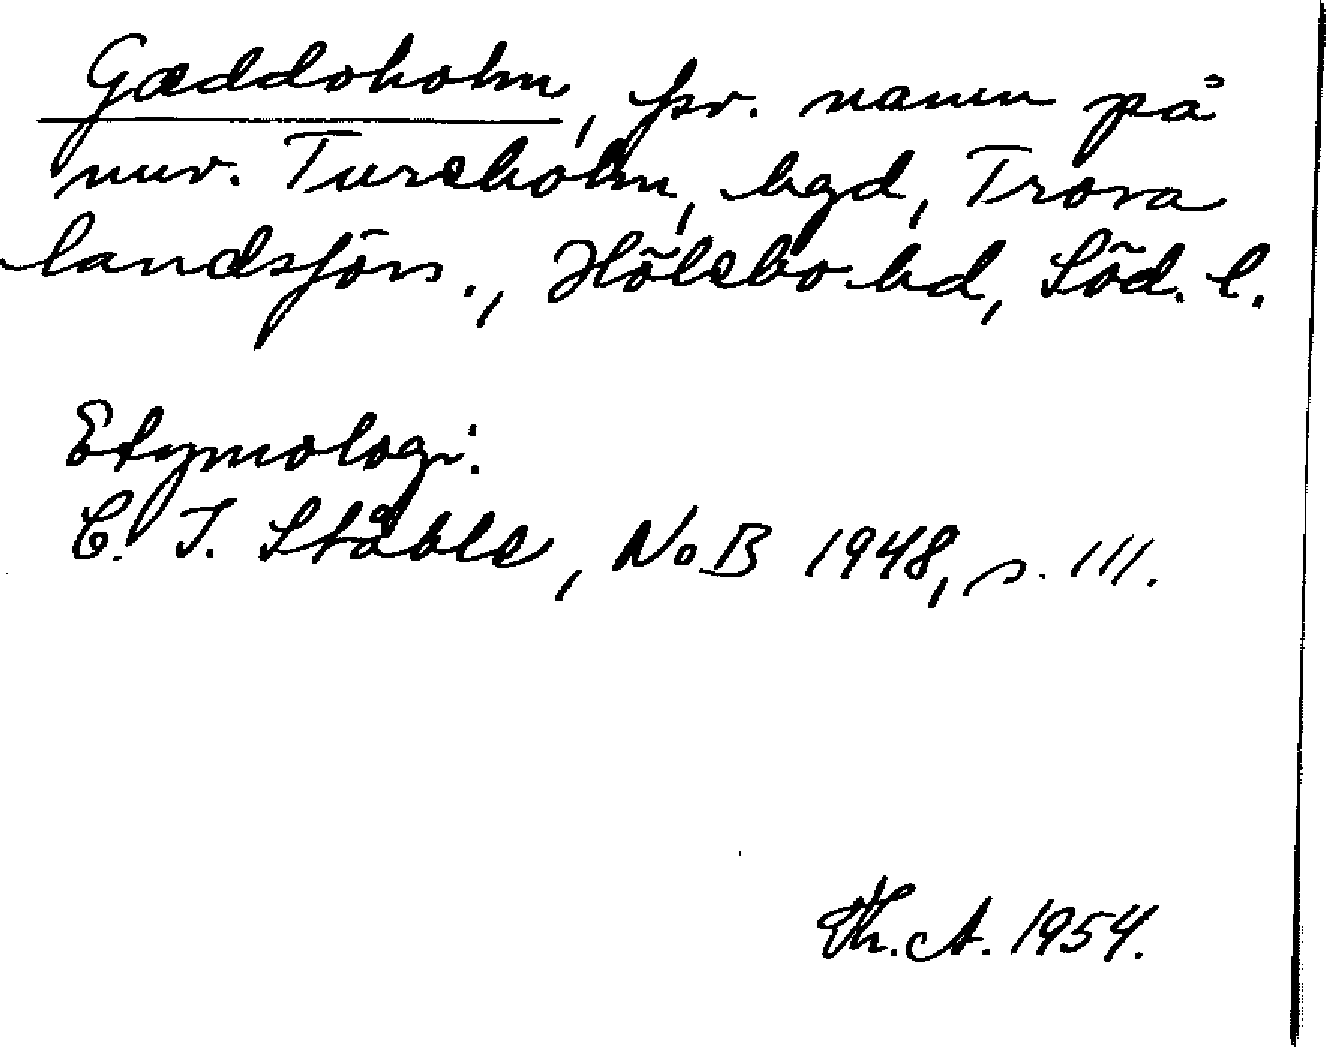 Gæddoholm, fsv. namn på
nuv. Tureholm, bgd, Trosa
landsförs., Hölebo hd, Söd. l.
Etymologi:
C. I. Ståhle, NoB 1948, s. 111.
Th. A. 1954.